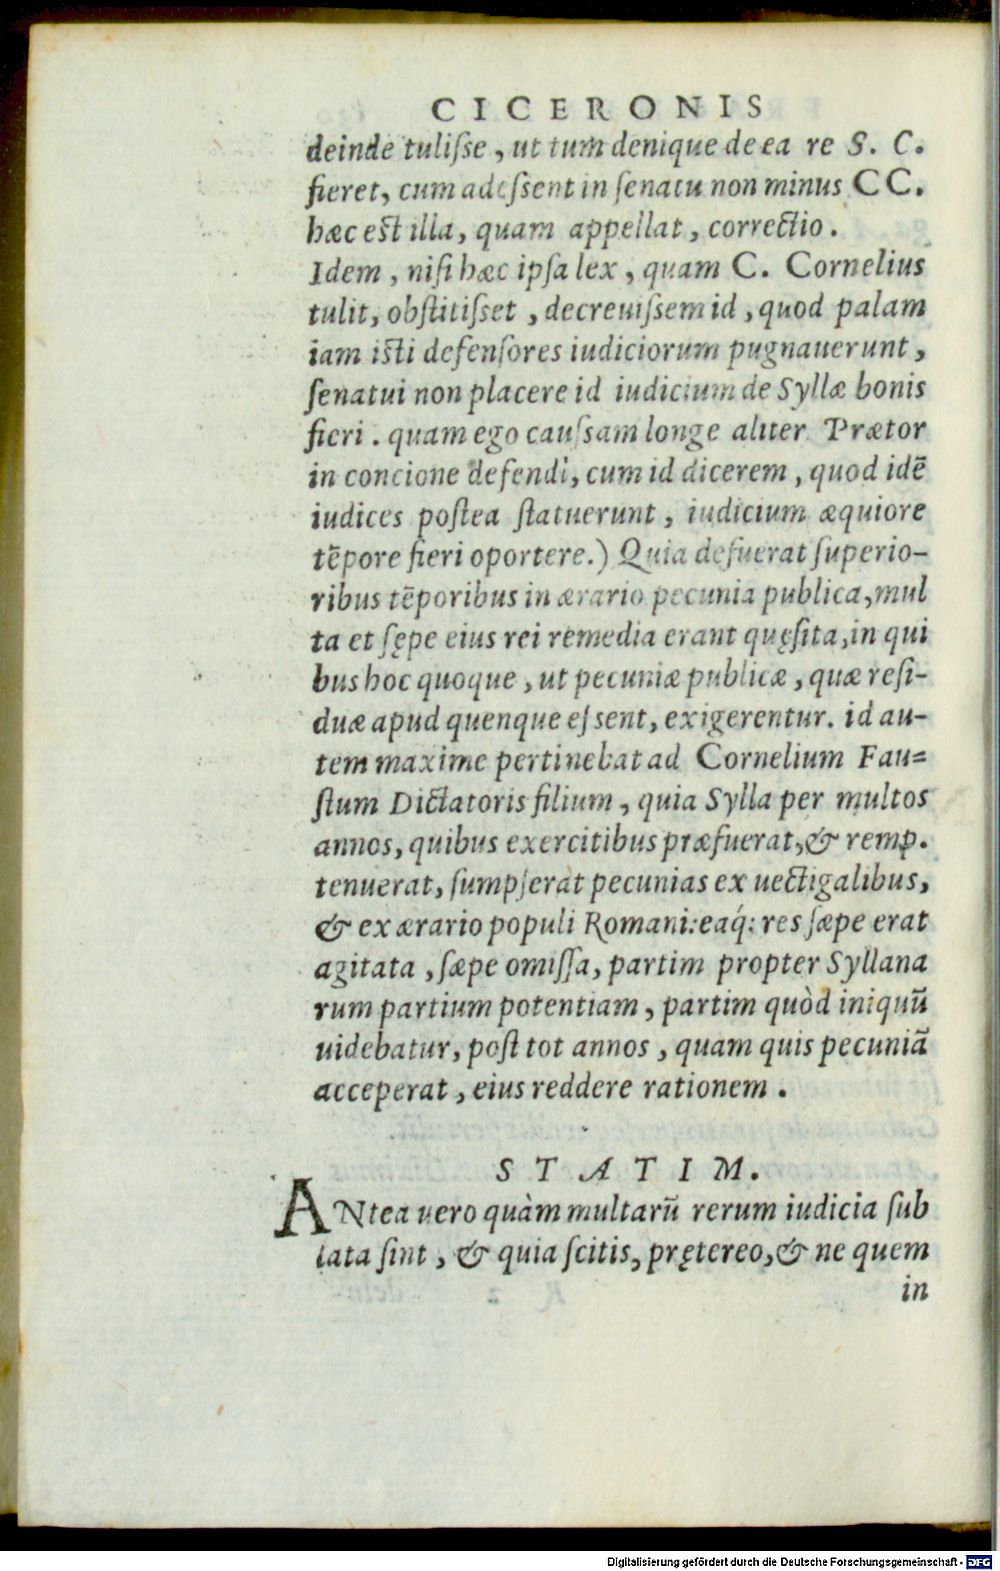 CICERONIS
deinde tuliſse, ut tum denique de ea re S. C.
fieret, cum adeſsent in ſenatu non minus CC.
hæc est illa, quam appellat, correctio.
Idem, niſi hæc ipſa lex, quam C. Cornelius
tulit, obſtitiſset, decreuiſsem id, quod palam
iam isti defenſores iudiciorum pugnauerunt,
ſenatui non placere id iudicium de Syllæ bonis
fieri. quam ego cauſsam longe aliter Prætor
in concione defendi, cum id dicerem, quod idē
iudices poſtea ſtatuerunt, iudicium æquiore
tēpore fieri oportere.) Quia defuerat ſuperio-
ribus tēporibus in ærario pecunia publica, mul
ta et ſępe eius rei remedia erant quęſita, in qui
bus hoc quoque, ut pecuniæ publicæ, quæ reſi-
duæ apud quenque eſsent, exigerentur. id au-
tem maxime pertinebat ad Cornelium Fau=
ſtum Dictatoris filium, quia Sylla per multos
annos, quibus exercitibus præfuerat, & remp.
tenuerat, ſumpſerat pecunias ex uectigalibus,
& ex ærario populi Romani: eaq́; res ſæpe erat
agitata, ſæpe omiſſa, partim propter Syllana
rum partium potentiam, partim quòd iniquū
uidebatur, poſt tot annos, quam quis pecuniā
acceperat, eius reddere rationem.
STATIM.
ANtea uero quàm multarū rerum iudicia ſub
lata ſint, & quia ſcitis, prętereo, & ne quem
in
Digitalisierung gefördert durch die Deutsche Forschungsgemeinschaft - DFG